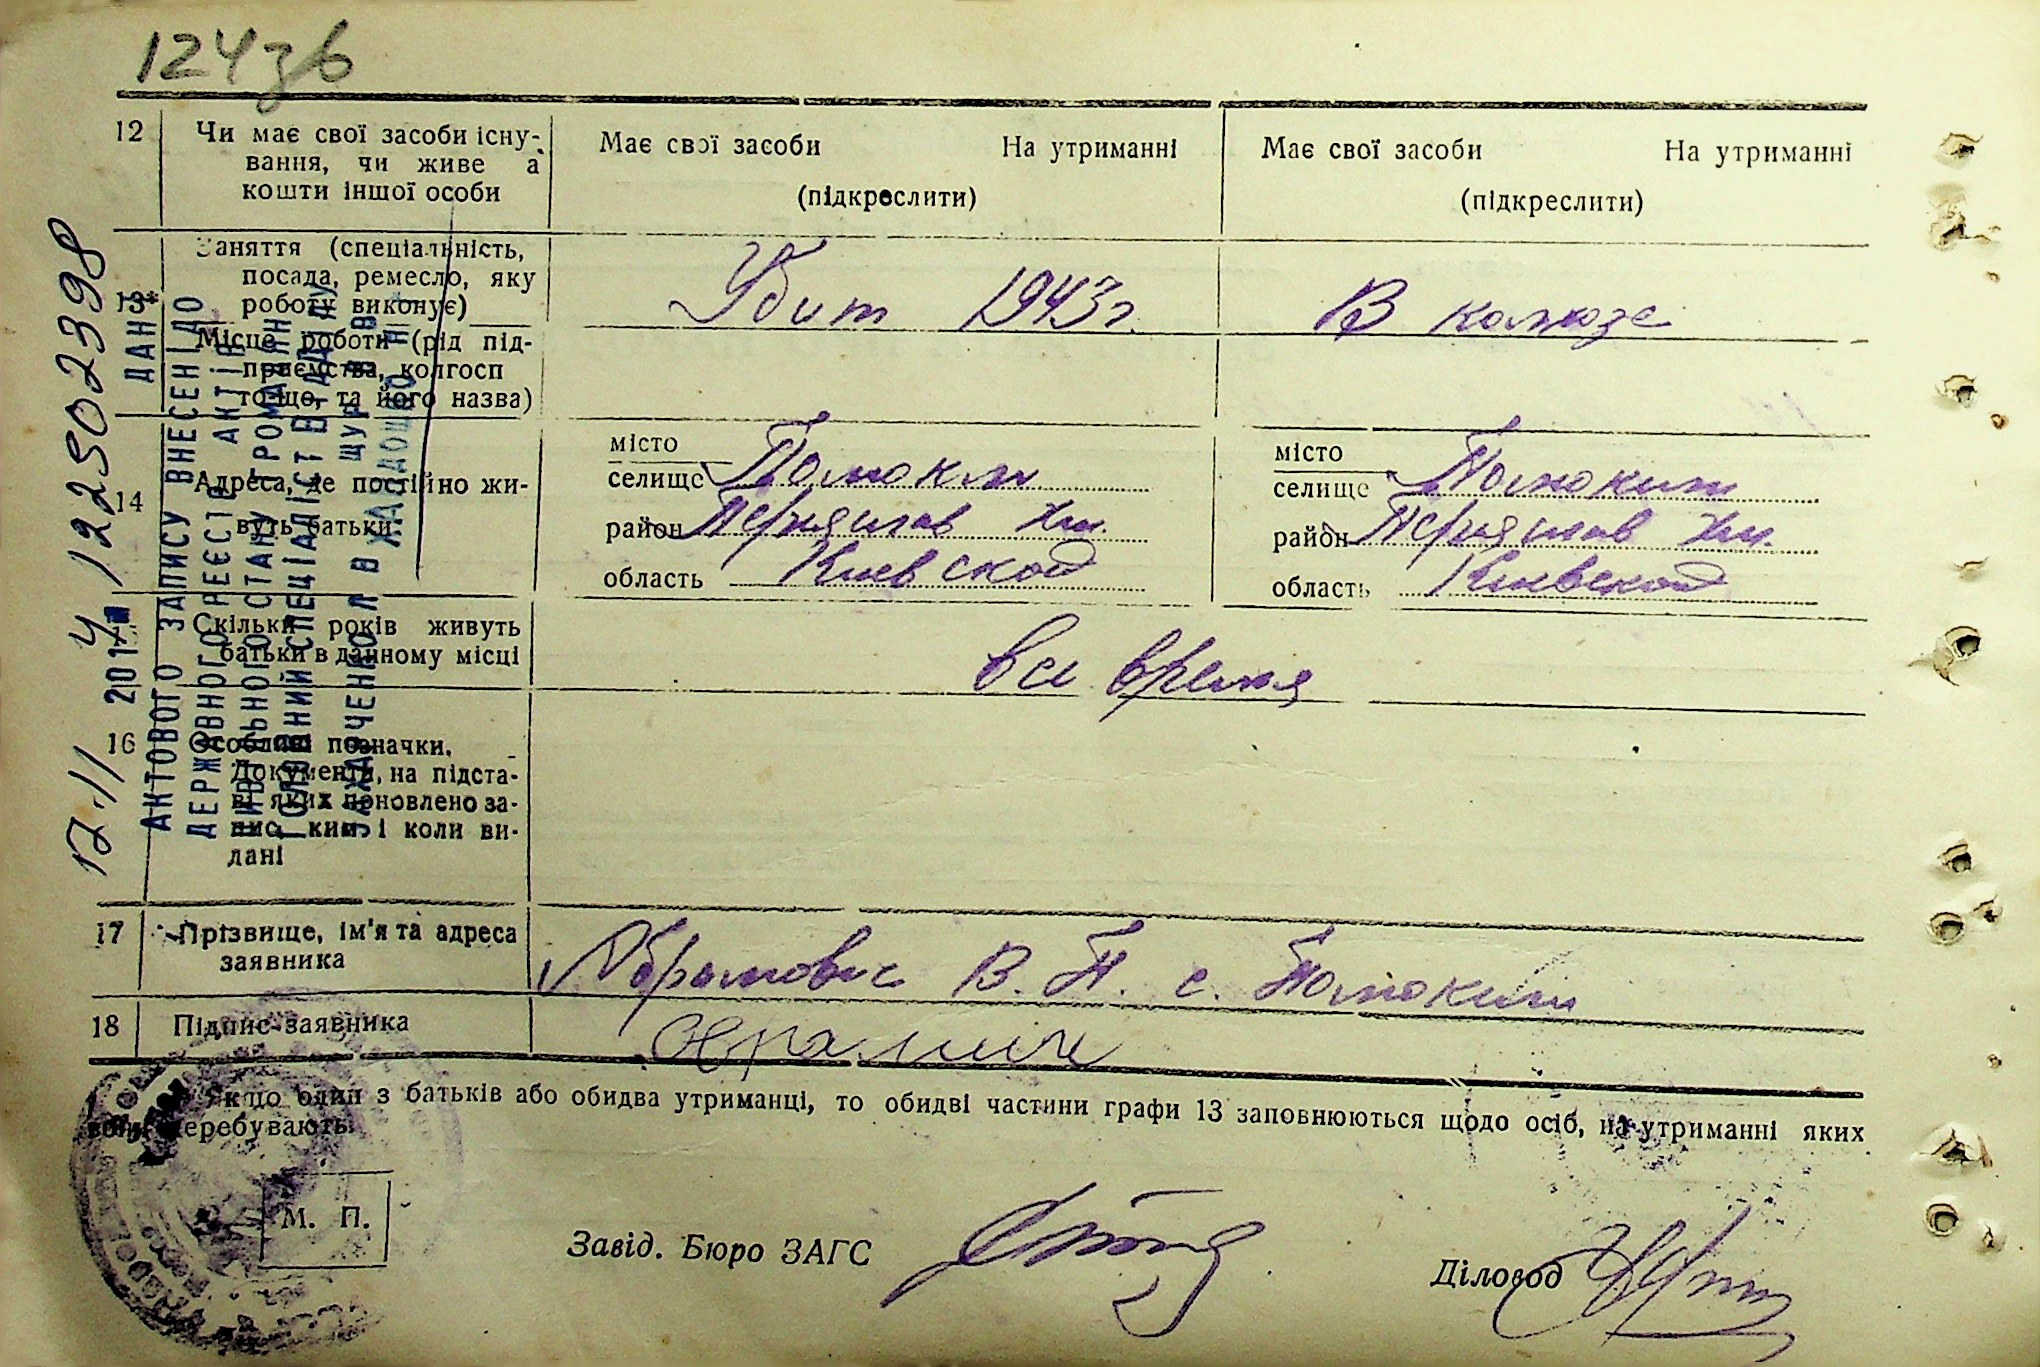 124зв
12 Чи має свої засоби існу-
вання, чи живе а
кошти іншої особи
Має свої засоби На утриманні
(підкреслити)
Має свої засоби На утриманні
(підкреслити)
13* Заняття (спеціальність,
посада, ремесло, яку
роботу виконує)
Убит 1943 г.
В колхозе
Місце роботи (рід під-
приємства, колгосп
тощо, та його назва)
14 Адреса, де постійно жи-
вуть батьки
місто
селище Помокли
район Переяслав Хм.
область Киевской
місто
селище Помокли
район Переяслав Хм.
область Киевской
Скільки років живуть
батьки в данному місці
все время
16 Особливі позначки.
Документи, на підста-
ві яких поновлено за-
пис, ким і коли ви-
дані
17 Прізвище, ім'я та адреса
заявника
Абрамович В. П. с. Помокли
18 Підпис заявника
Якщо один з батьків або обидва утриманці, то обидві частини графи 13 заповнюються щодо осіб, на утриманні яких
вони перебувають
М. П.
Завід. Бюро ЗАГС
Діловод
ДАНІ
АКТОВОГО ЗАПИСУ ВНЕСЕНІ ДО
ДЕРЖАВНОГО РЕЄСТР АКТІВ
ЦИВІЛЬНОГО СТАНУ ГРОМАДЯН
ГОЛОВНИЙ СПЕЦІАЛІСТ ВІДДІЛУ
12.11 2014 122502398